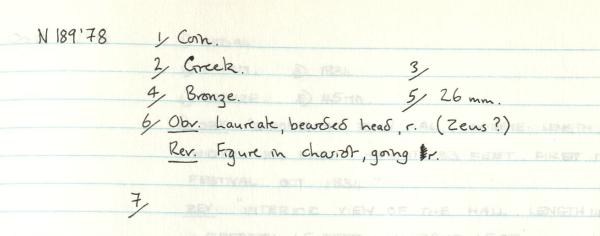 N 189'78 1/ Coin.
2/ Greek. 3/
4/ Bronze. 5/ 26 mm.
6/ Obv. Laureate, bearded head, r. (Zeus?)
Rev. Figure in chariot, going r.
7/